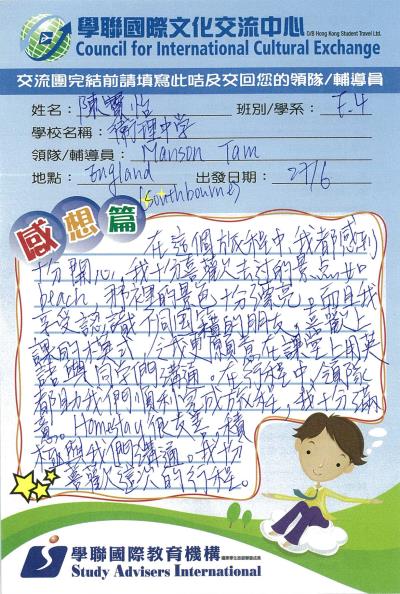 學聯國際文化交流中心
D/B Hong Kong Student Travel Ltd.
Council for International Cultural Exchange
交流團完結前請填寫此咭及交回您的領隊/輔導員
姓名：陳寶怡 班別/學系：F.4
學校名稱：衞理中學
領隊/輔導員：Manson Tam
地點：England 出發日期：27/6
(Southbourne)
感想篇
在這個旅程中,我都感到
十分開心,我十分喜歡去過的景點,如
beach,那裡的景色十分漂亮。而且我
享受認識不同國籍的朋友,喜歡上
課的模式,令我更願意在課堂上用英
語與同學們溝通。在行程中,領隊
都助我們順利完成旅程,我十分滿
意。Homestay很友善,積
極與我們溝通。我十分
喜歡這次的行程。
學聯國際教育機構
Study Advisers International